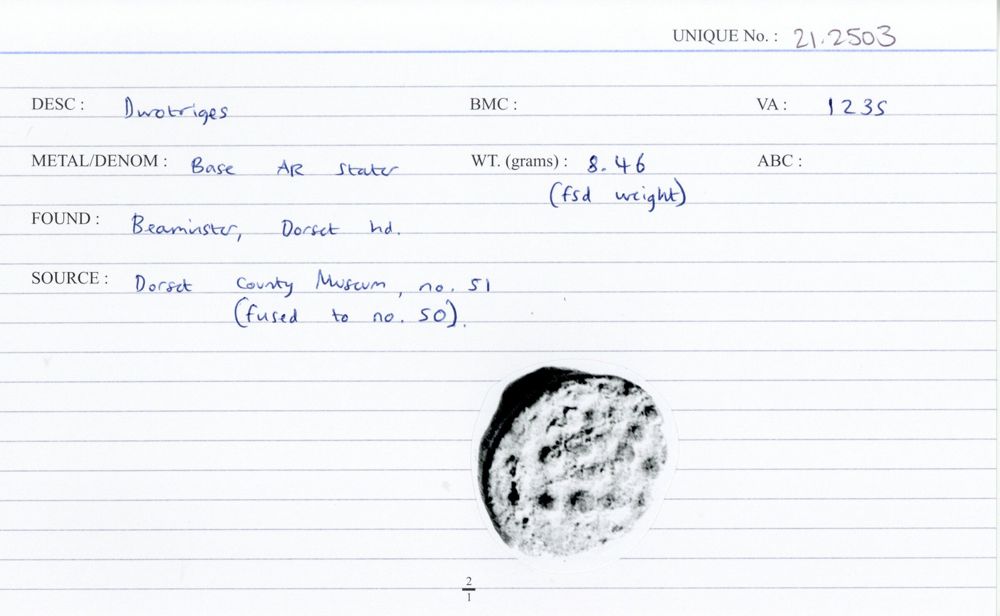 UNIQUE No. : 21.2503
DESC : Durotriges BMC : VA : 1235
METAL/DENOM : Base AR stater WT. (grams) : 8.46 ABC :
(fsd weight)
FOUND : Beaminster, Dorset hd.
SOURCE : Dorset County Museum, no. 51
(fused to no. 50).
2
1